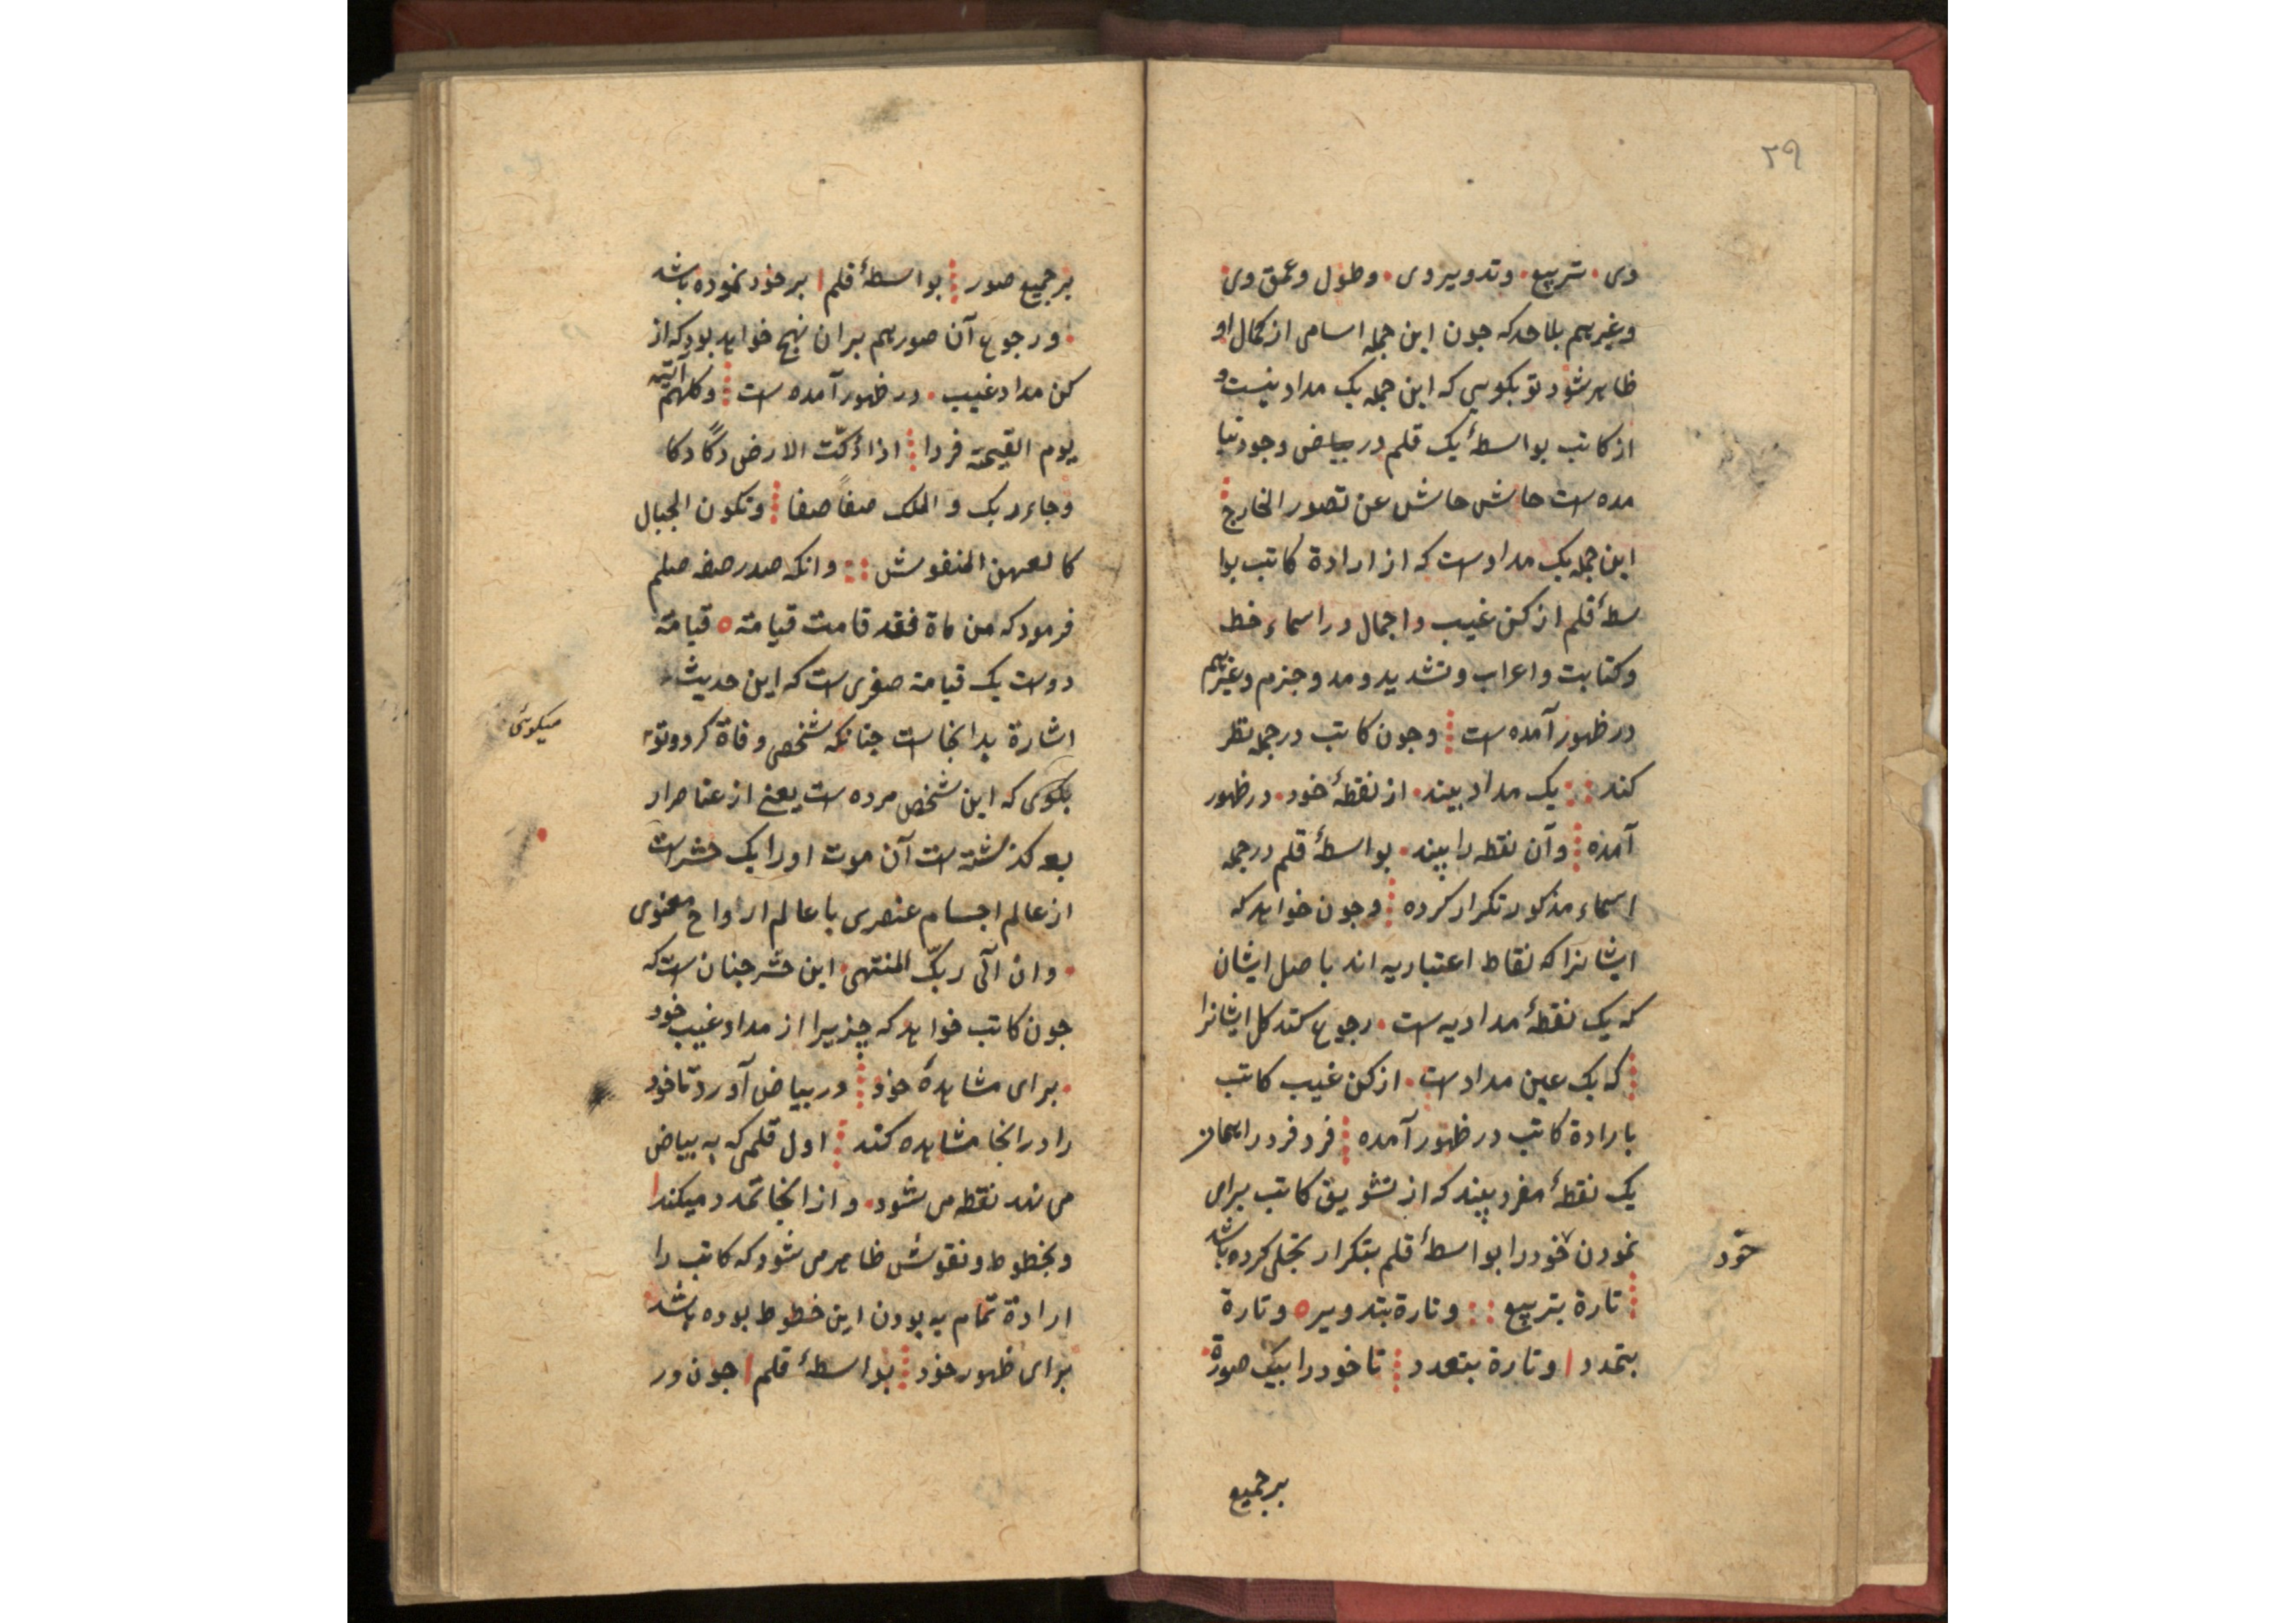 ٢٩
وی • تربیع • وتدویر وی • وطول وعمق وی
وغیرهم بلا حد که جون این جمله اسامی از کمال او
ظاهر شود تو بکویی که این جمله یک مداد نیست و
از کاتب بواسطهٔ یک قلم در بیاض وجود نیا
مده است حاش حاش عن تصور الخارج
این جمله یک مداد ست که از ارادة کاتب بوا
سطهٔ قلم از کن غیب و اجمال در اسماء خط
وکتابت واعراب وتشدید ومد وجزم وغیرهم
در ظهور آمده است وجون کاتب در جمله نظر
کند یک مداد بیند • از نقطهٔ خود • در ظهور
آمده وآن نقطه را بیند • بواسطهٔ قلم در جمله
اسماء مذکور تکرار کرده وجون خواهد که
ایشانرا که نقاط اعتباریه اند باصل ایشان
که یک نقطهٔ مدادیه است • رجوع کند کل ایشانرا
که یک عین مداد ست • از کن غیب کاتب
بارادة کاتب در ظهور آمده فرد فرد در اسمان
یک نقطهٔ مفرد بیند که از تشویق کاتب برای
نمودن خود را بواسطهٔ قلم بتکرار تجلی کرده باشد
خود
تارة بتربیع وتارة بتدویر ه وتارة
بتمدد وتارة بتعدد تا خود را بیک صورة
برجمیع
برجمیع صور بواسطهٔ قلم بر خود نموده باشد
• ورجوع آن صور هم بران نهج خواهد بود که از
کن مداد غیب • در ظهور آمده است وکلهم آتیه
یوم القیمة فردا اذا دکّت الارض دکًا دکا
وجاء ربک و الملک صفاً صفا وتکون الجبال
کالعهن المنفوش وانکه صدر صفه صلم
فرمود که من ماة فقد قامت قیامته ه قیامة
دوست یک قیامة صغری ست که این حدیث
اشارة بدانجاست جنانکه شخصی وفاة کرد وتو
میکوئی
بکوی که این شخص مرده است یعنی از عناصر ار
بعه کذشته است آن موت اورا یک حشر است
از عالم اجسام عنصری با عالم ارواح معنوی
• وان الی ربّک المنتهی • این حشر جنان ست که
جون کاتب خواهد که جیزیرا از مداد غیب خود
• برای مشاهدهٔ خود در بیاض آورد تا خود
را در انجا مشاهده کند اول قلمی که به بیاض
می نهد نقطه می شود • و از انجا تمدد میکند
وبخطوط ونقوش ظاهر می شود که کاتب را
ارادة تمام به بودن این خطوط بوده باشد
برای ظهور خود بواسطهٔ قلم جون در